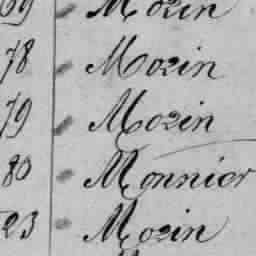 69 Mozin
78 Mozin
79 Mozin
80 Monnier
23 Mozin